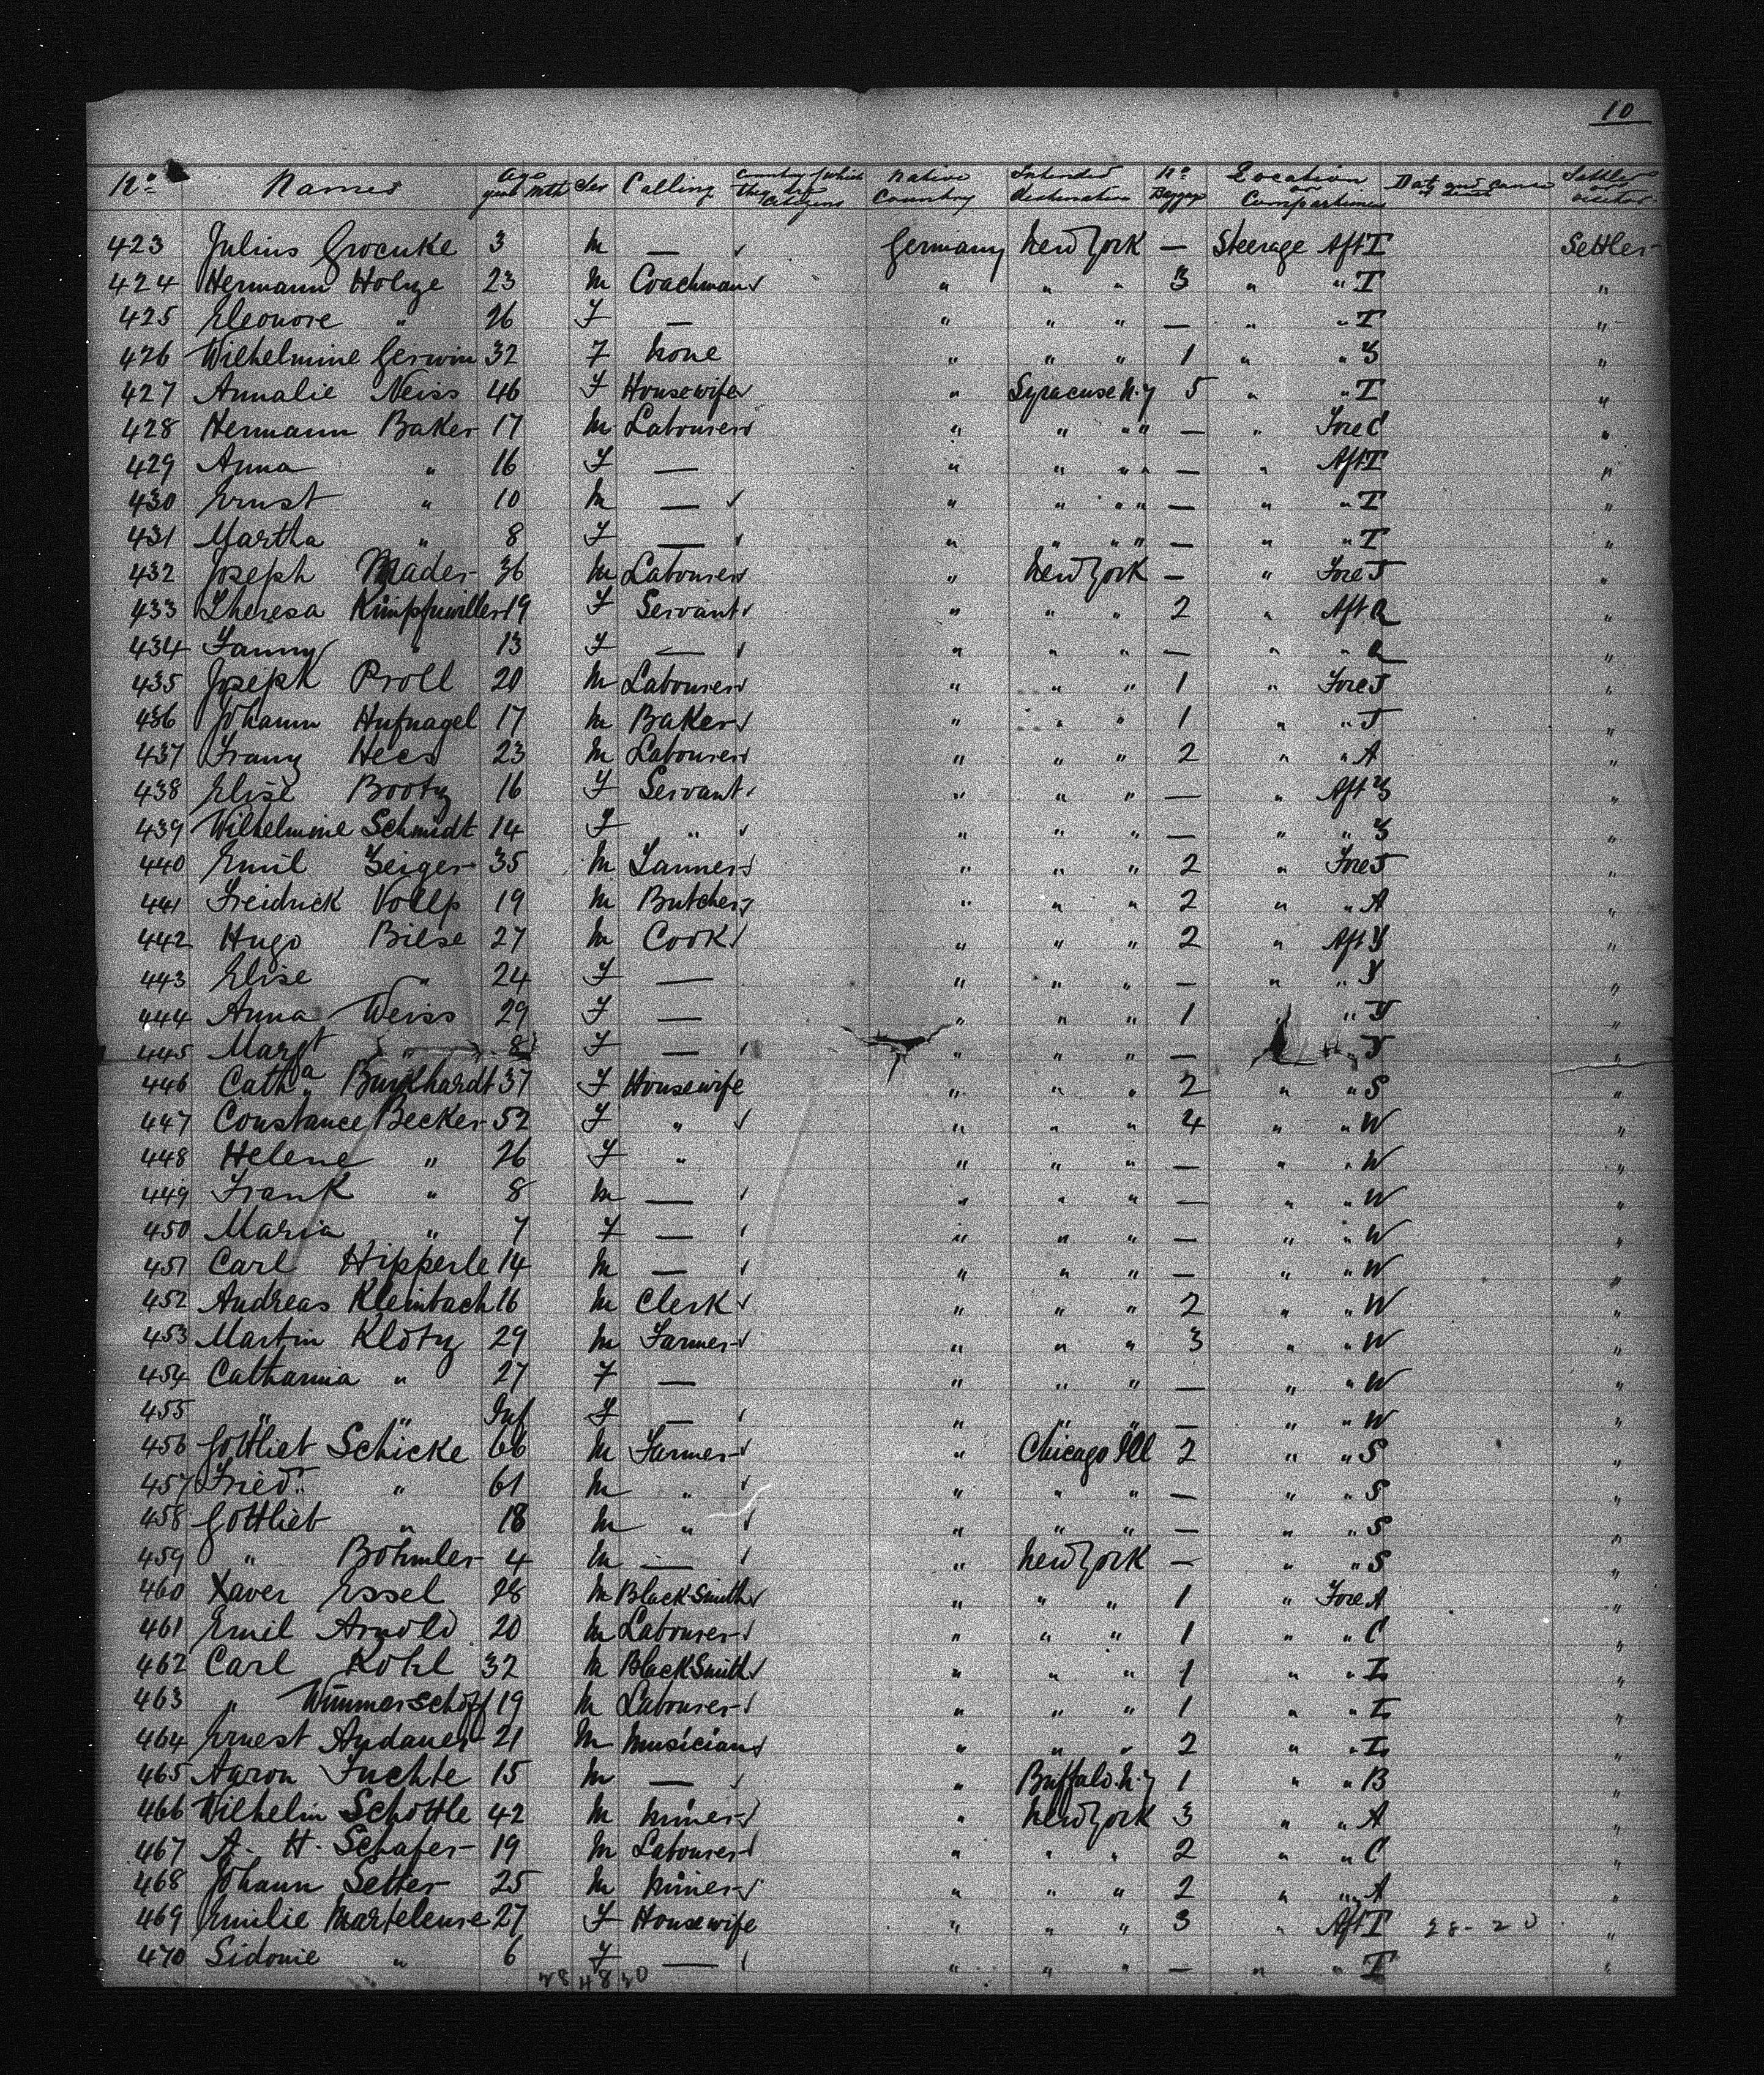 10
No Names Age years Mth Sex Calling Country of which they are Citizens Native Country Intended destination No Baggage Location or Compartment Date and cause of death Settler or visitor
423 Julius Groenke 3 M — ✓ Germany New York — Steerage Aft I Settler
424 Hermann Holtze 23 M Coachman ✓ " " " 3 " " I "
425 Eleonore " 26 F — " " " — " " I "
426 Wilhelmine Gerwin 32 F None " " " 1 " " Y "
427 Annalie Neiss 46 F Housewife ✓ " Syracuse N.Y 5 " " I "
428 Hermann Baker 17 M Labourer ✓ " " " " — " Fore C "
429 Anna " 16 F — " " " " — " Aft I "
430 Ernst " 10 M — ✓ " " " " — " " I "
431 Martha " 8 F — ✓ " " " " — " " I "
432 Joseph Mader 36 M Labourer ✓ " New York — " Fore J "
433 Theresa Kümpfmiller 19 F Servant ✓ " " " 2 " Aft Q "
434 Fanny " 13 F — ✓ " " " — " " Q "
435 Joseph Proll 20 M Labourer ✓ " " " 1 " Fore J "
436 Johann Hufnagel 17 M Baker ✓ " " " 1 " " J "
437 Franz Hees 23 M Labourer ✓ " " " 2 " " A "
438 Elise Bootz 16 F Servant ✓ " " " — " Aft Y "
439 Wilhelmine Schmidt 14 F " ✓ " " " — " " Y "
440 Emil Zeiger 35 M Tanner ✓ " " " 2 " Fore J "
441 Freidrick Vollp 19 M Butcher ✓ " " " 2 " " A "
442 Hugo Bilse 27 M Cook ✓ " " " 2 " Aft Y "
443 Elise " 24 F — " " " — " " Y "
444 Anna Weiss 29 F — " " " 1 " " Y "
445 Margt " 8 F — ✓ " " " — " " Y "
446 Catha Burkhardt 37 F Housewife " " " 2 " " S "
447 Constance Becker 52 F " ✓ " " " 4 " " W "
448 Helene " 26 F " " " " — " " W "
449 Frank " 8 M — ✓ " " " — " " W "
450 Maria " 7 F — ✓ " " " — " " W "
451 Carl Hipperle 14 M — ✓ " " " — " " W "
452 Andreas Kleinbach 16 M Clerk ✓ " " " 2 " " W "
453 Martin Klotz 29 M Farmer ✓ " " " 3 " " W "
454 Catharina " 27 F — " " " — " " W "
455 " " Inf F — ✓ " " " — " " W "
456 Gottlieb Schicke 66 M Farmer ✓ " Chicago Ill 2 " " S "
457 Fried. " 61 M " ✓ " " " — " " S "
458 Gottlieb " 18 M " ✓ " " " — " " S "
459 " Böhmler 4 M — ✓ " New York — " " S "
460 Xaver Essel 28 M BlackSmith ✓ " " " 1 " Fore A "
461 Emil Arnold 20 M Labourer ✓ " " " 1 " " C "
462 Carl Kohl 32 M BlackSmith ✓ " " " 1 " " L "
463 " Wimmerschoff 19 M Labourer ✓ " " " 1 " " L "
464 Ernest Andauer 21 M Musician ✓ " " " 2 " " L "
465 Aaron Fuchte 15 M — ✓ " Buffalo. N.Y 1 " " B "
466 Wilhelm Schöttle 42 M Miner ✓ " New York 3 " " A "
467 A. H. Schafer 19 M Labourer ✓ " " " 2 " " C "
468 Johann Setter 25 M Miner ✓ " " " 2 " " A "
469 Emilie Marteleuse 27 F Housewife " " " 3 " Aft I 28-20 "
470 Sidonie " 6 F — ✓ " " " — " " I "
28 48 20